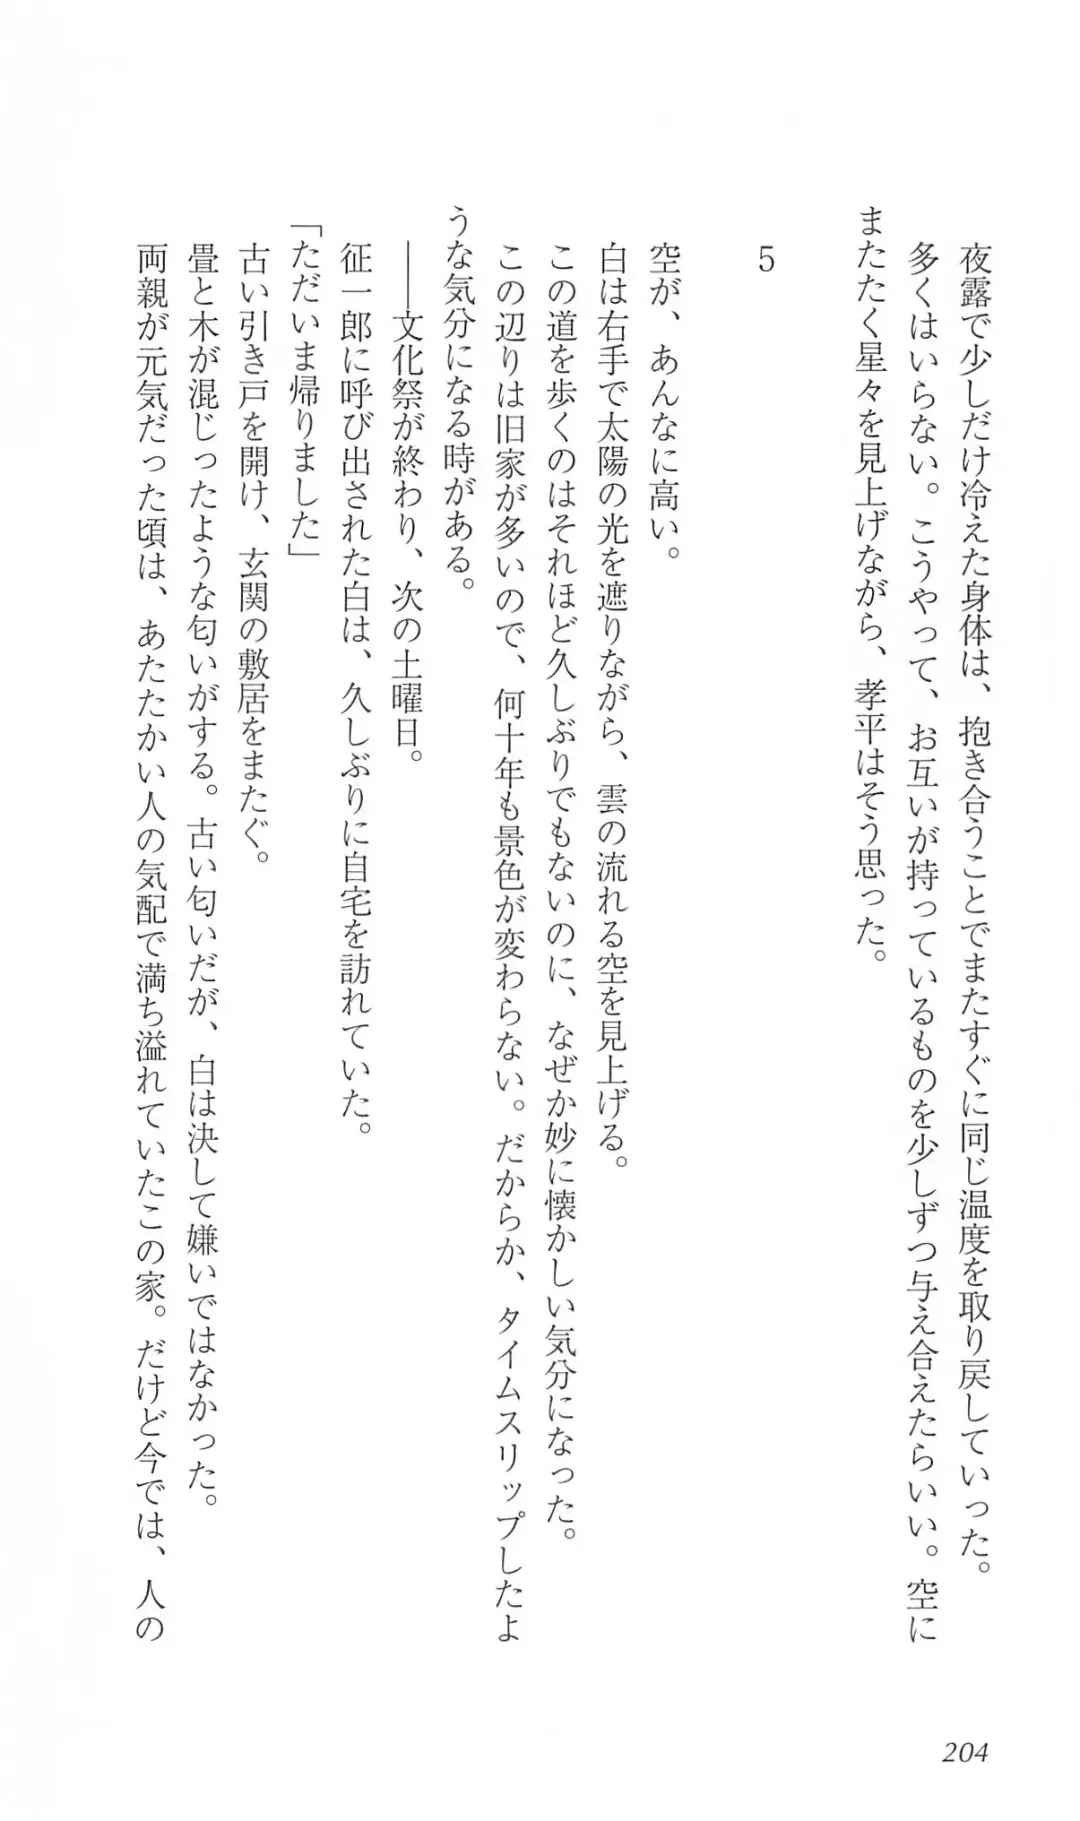 夜露で少しだけ冷えた身体は、抱き合うことでまたすぐに同じ温度を取り戻していった。
多くはいらない。こうやって、お互いが持っているものを少しずつ与え合えたらいい。空に
またたく星々を見上げながら、孝平はそう思った。
5
空が、あんなに高い。
白は右手で太陽の光を遮りながら、雲の流れる空を見上げる。
この道を歩くのはそれほど久しぶりでもないのに、なぜか妙に懐かしい気分になった。
この辺りは旧家が多いので、何十年も景色が変わらない。だからか、タイムスリップしたよ
うな気分になる時がある。
――文化祭が終わり、次の土曜日。
征一郎に呼び出された白は、久しぶりに自宅を訪れていた。
「ただいま帰りました」
古い引き戸を開け、玄関の敷居をまたぐ。
畳と木が混じったような匂いがする。古い匂いだが、白は決して嫌いではなかった。
両親が元気だった頃は、あたたかい人の気配で満ち溢れていたこの家。だけど今では、人の
204